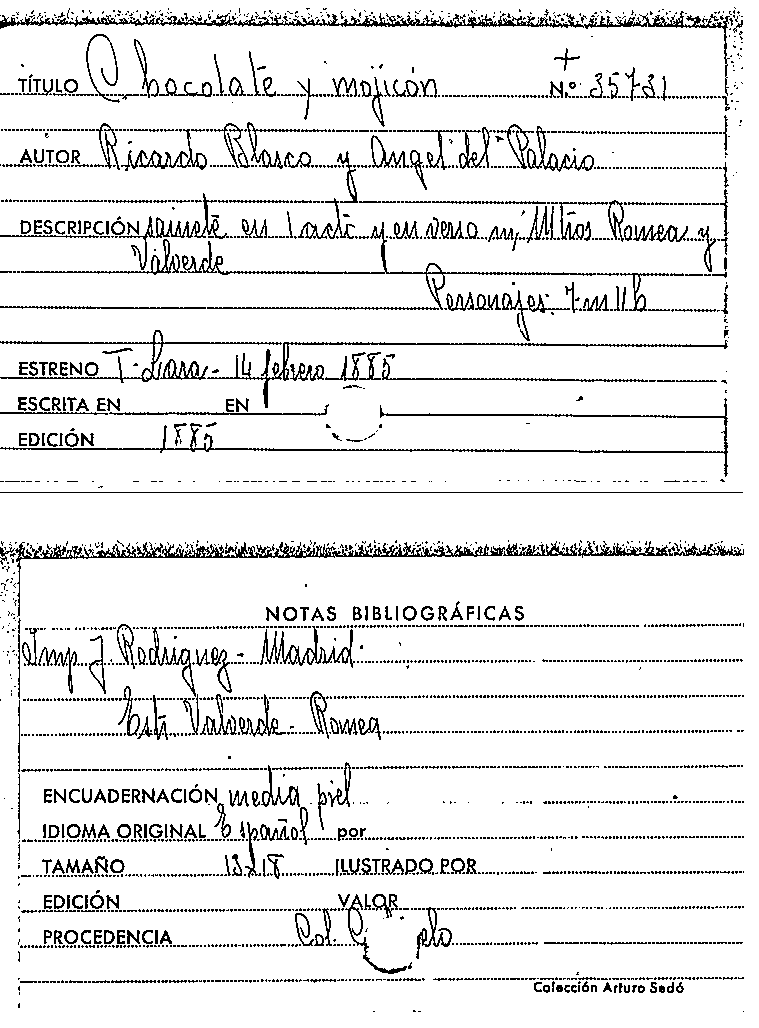 TÍTULO Chocolate y mojicón N.º 35731
AUTOR Ricardo Blasco y Angel del Palacio
DESCRIPCIÓN sainete en 1 acto y en verso m/ Mtros Romea y
Valverde
Personajes. 7 m 11 h
ESTRENO T. Lara - 14 febrero 1885
ESCRITA EN EN
EDICIÓN 1885
NOTAS BIBLIOGRÁFICAS
Imp J Rodriguez - Madrid
Valverde - Romea
ENCUADERNACIÓN media piel
IDIOMA ORIGINAL Español por
TAMAÑO 13x18 ILUSTRADO POR
EDICIÓN VALOR
PROCEDENCIA Col.
Colección Arturo Sedó